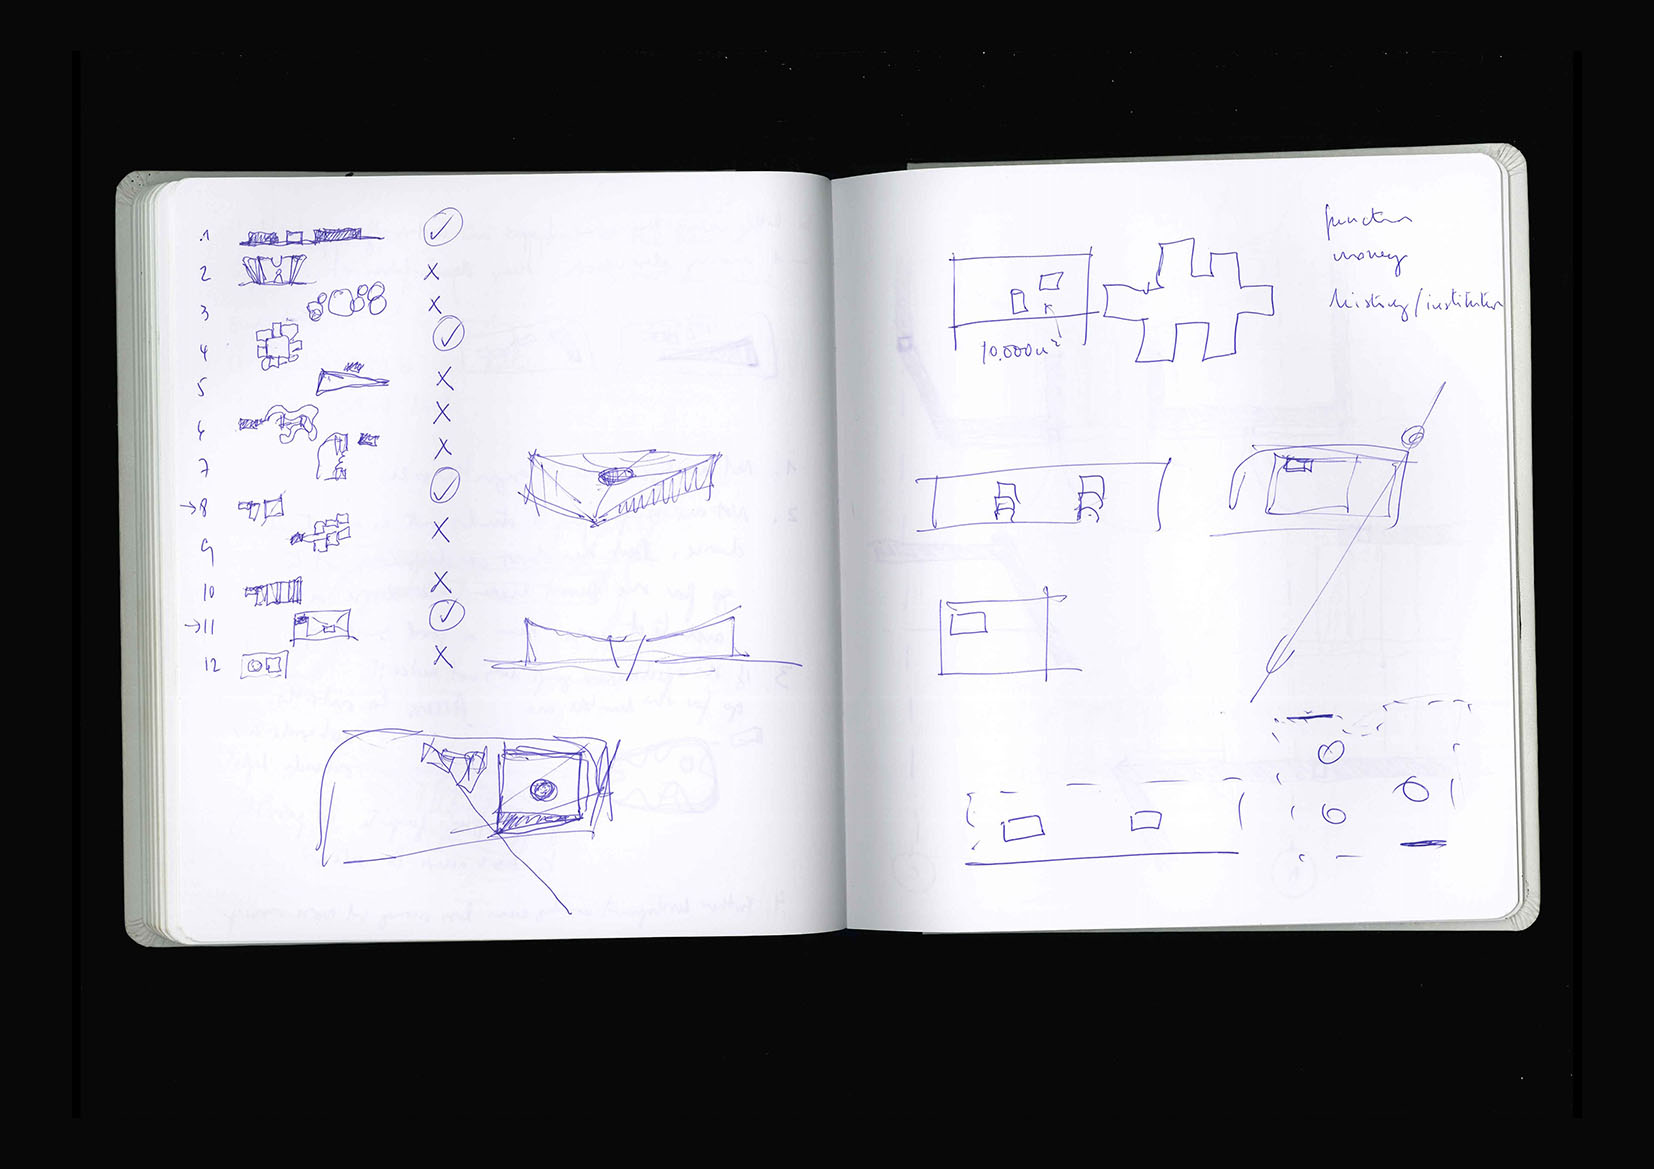 .1 ✓
2 x
3 x
4 ✓
5 x
6 x
7 x
→8 ✓
9 x
10 x
→11 ✓
12 x
function
money
history/institution
10.000m²